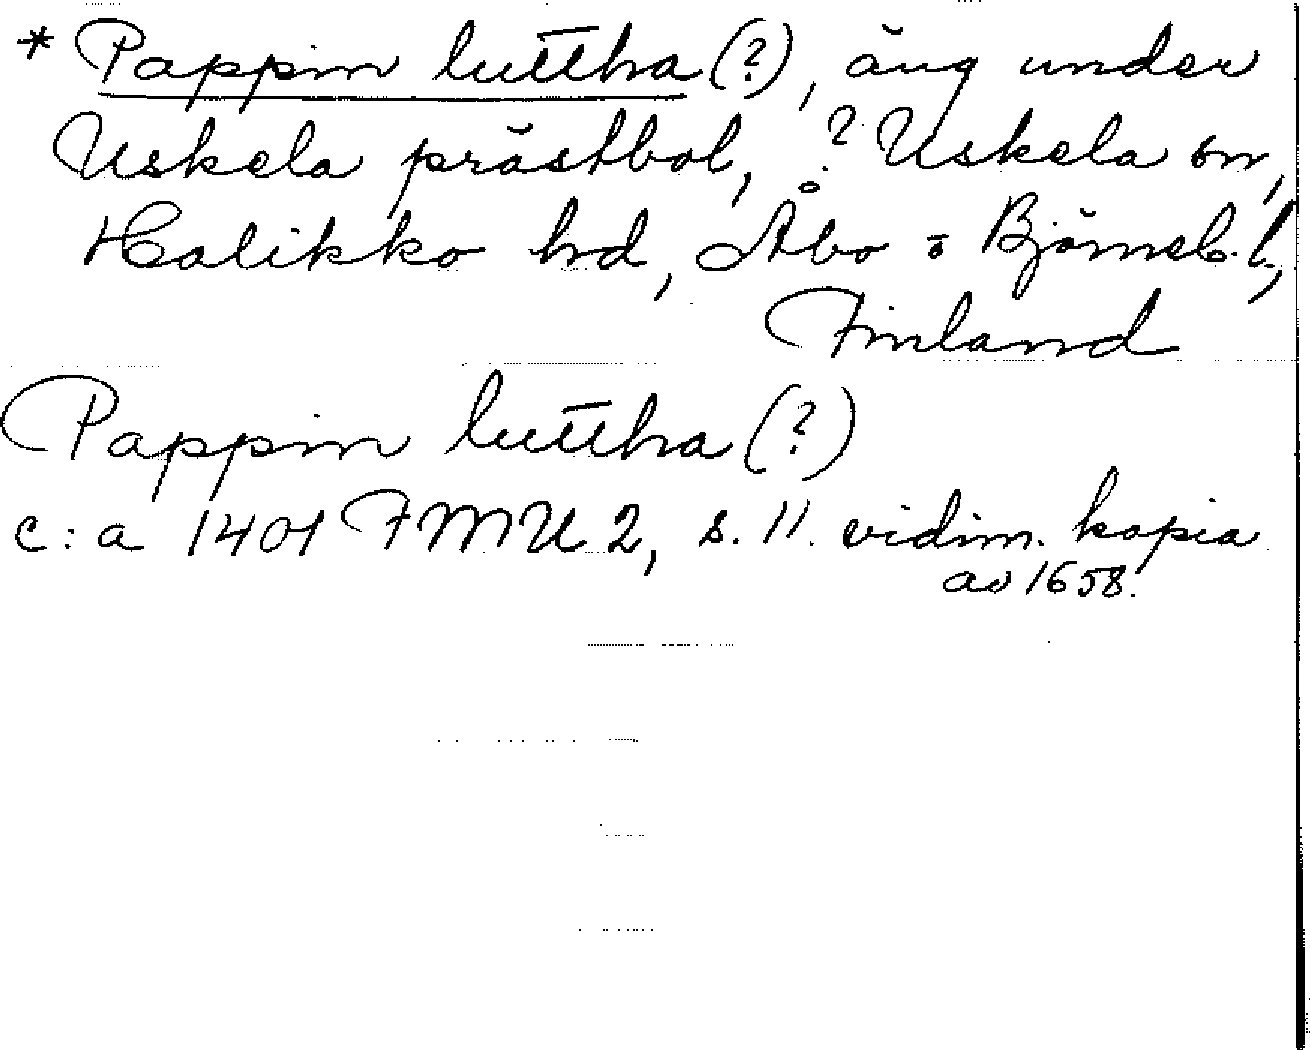 * Pappin luttha (?), äng under
Uskela prästbol, ? Uskela sn,
Halikko hd, Åbo o Björneb. l,
Finland
Pappin luttha (?)
c:a 1401 FMU 2, s. 11. vidim. kopia
av 1658.